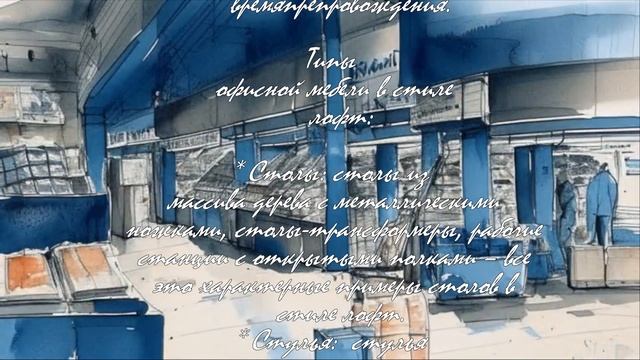 времяпрепровождения.
Типы
офисной мебели в стиле
лофт:
* Столы: столы из
массива дерева с металлическими
ножками, столы-трансформеры, рабочие
станции с открытыми полками – все
это характерные примеры столов в
стиле лофт.
* Стулья: стулья